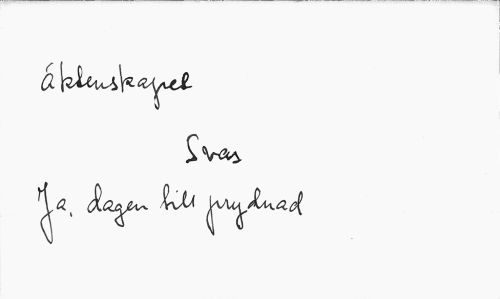 Äktenskapet
Svar
Ja, dagen till prydnad